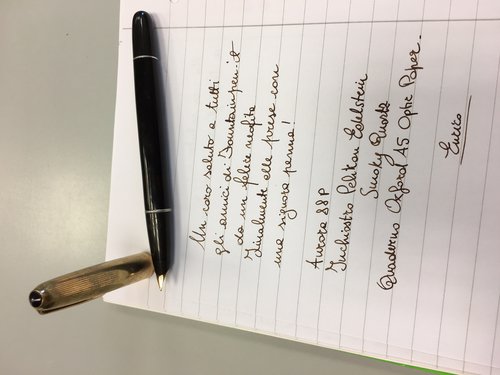 Un caro saluto a tutti
gli amici di Fountainpen.it
da un felice neofita
Finalmente alle prese con
una signora penna!
Aurora 88P
Inchiostro Pelikan Edelstein
Smoky Quartz
Quaderno Oxford A5 Optic Paper.
Enrico